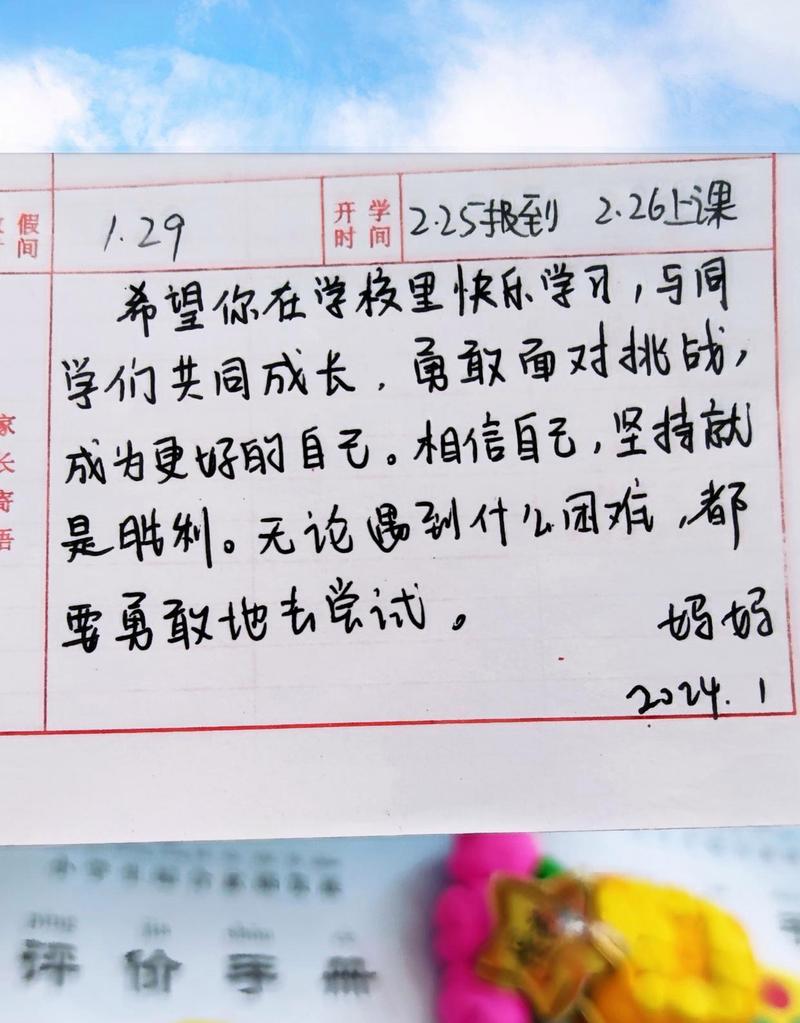 假 1.29 开学 2.25报到 2.26上课
间 时间
希望你在学校里快乐学习,与同
学们共同成长,勇敢面对挑战,
成为更好的自己。相信自己,坚持就
是胜利。无论遇到什么困难,都
要勇敢地去尝试。 妈妈
2024.1
家
长
寄
语
评价手册